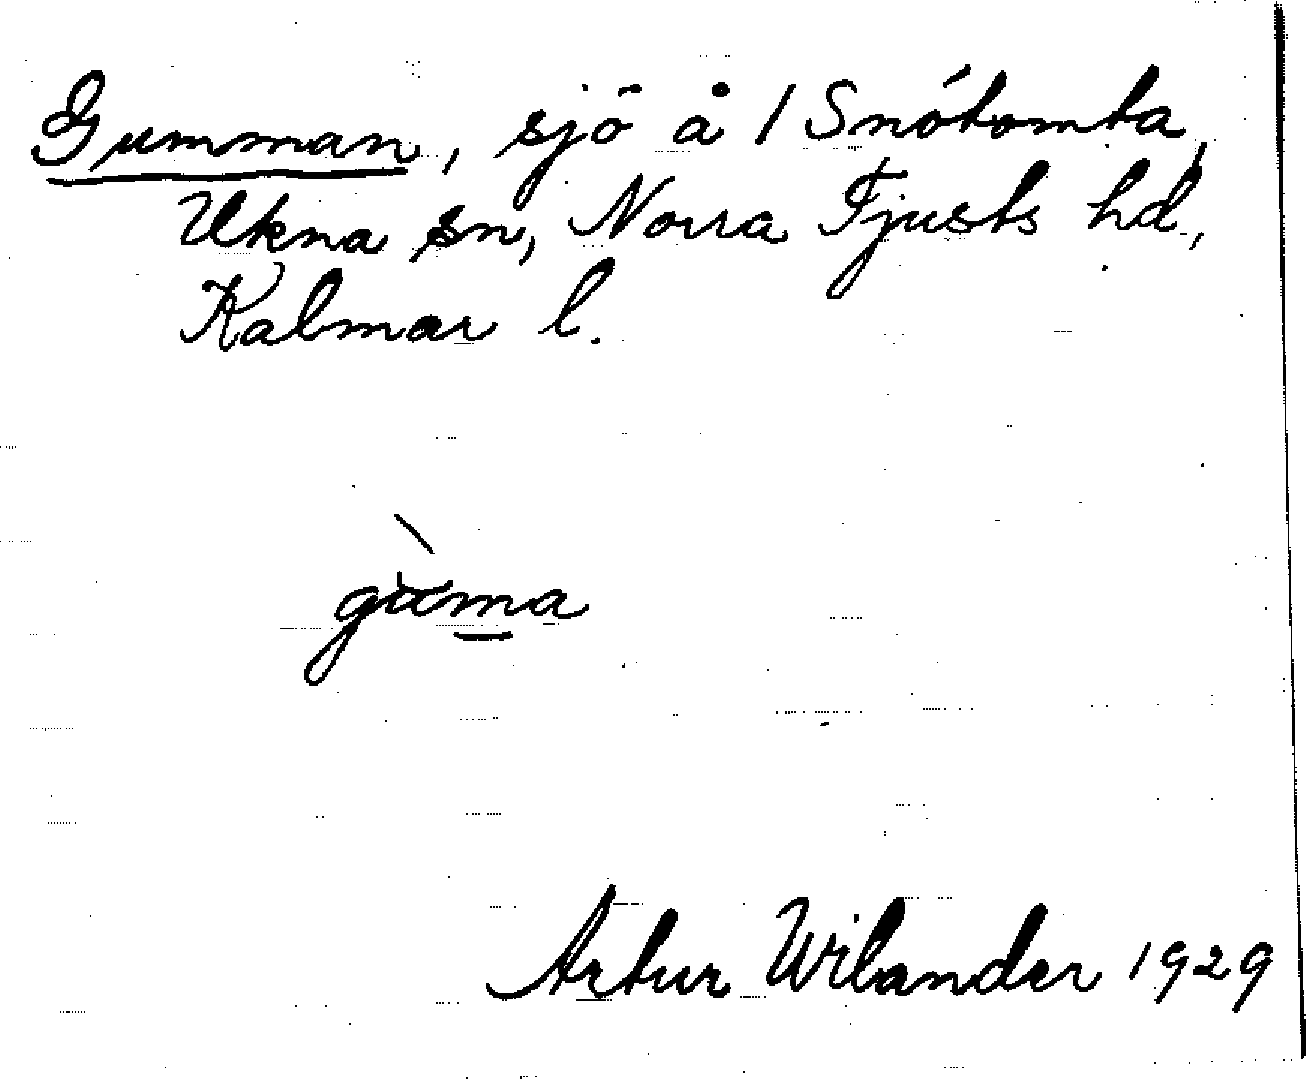 Gumman, sjö å 1 Snótomta,
Ukna sn, Norra Tjusts hd,
Kalmar l.
Artur Wilander 1929